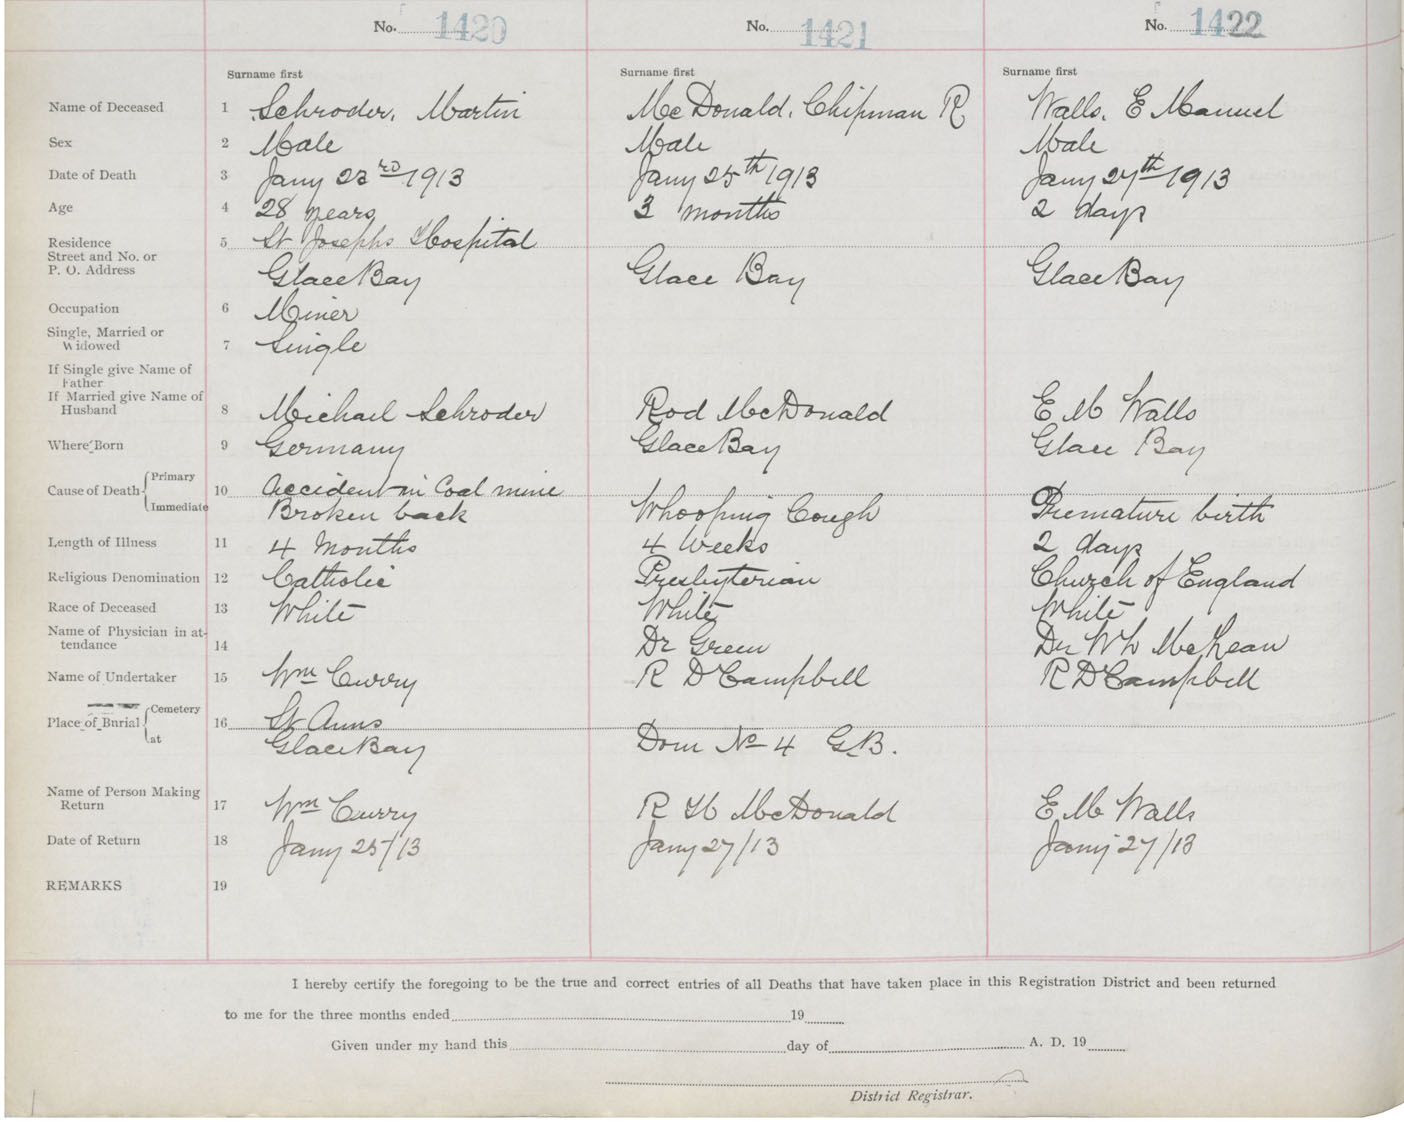 No. 1420 No. 1421 No. 1422
Surname first Surname first Surname first
Name of Deceased 1 Schroder, Martin McDonald, Chipman R Walls, E Manuel
Sex 2 Male Male Male
Date of Death 3 Jany 23rd 1913 Jany 25th 1913 Jany 27th 1913
Age 4 28 years 3 months 2 days
Residence 5 St Josephs Hospital
Street and No. or
P. O. Address Glace Bay Glace Bay Glace Bay
Occupation 6 Miner
Single, Married or
Widowed 7 Single
If Single give Name of
Father
If Married give Name of
Husband 8 Michael Schroder Rod McDonald E M Walls
Where Born 9 Germany Glace Bay Glace Bay
Primary
Cause of Death 10 Accident in Coal mine
Immediate Broken back Whooping Cough Premature birth
Length of Illness 11 4 Months 4 Weeks 2 days
Religious Denomination 12 Catholic Presbyterian Church of England
Race of Deceased 13 White White White
Name of Physician in at-
tendance 14 Dr Green Dr McKean
Name of Undertaker 15 Wm Curry R D Campbell R D Campbell
Cemetery
Place of Burial 16 St Anns
at Glace Bay Dom No 4 G.B.
Name of Person Making
Return 17 Wm Curry R H McDonald E M Walls
Date of Return 18 Jany 25/13 Jany 27/13 Jany 27/13
REMARKS 19
I hereby certify the foregoing to be the true and correct entries of all Deaths that have taken place in this Registration District and been returned
to me for the three months ended 19
Given under my hand this day of A. D. 19
District Registrar.